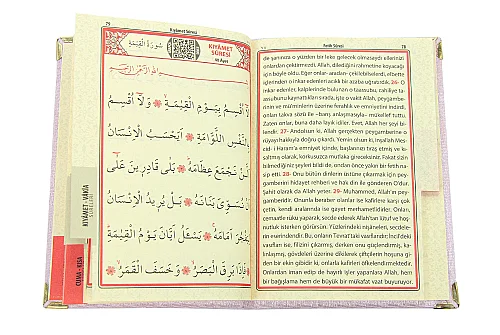 79
Kıyâmet Sûresi
سُورَةُ الْقِيٰمَةِ
KIYÂMET
SÛRESİ
40 Âyet
لَٓا اُقْسِمُ بِيَوْمِ الْقِيٰمَةِۙ وَلَٓا اُقْسِمُ
بِالنَّفْسِ اللَّوَّامَةِ اَيَحْسَبُ الْاِنْسَانُ
اَلَّنْ نَجْمَعَ عِظَامَهُ بَلٰى قَادِر۪ينَ عَلٰٓى
اَنْ نُسَوِّيَ بَنَانَهُ بَلْ يُر۪يدُ الْاِنْسَانُ
لِيَفْجُرَ اَمَامَهُ يَسْـَٔلُ اَيَّانَ يَوْمُ الْقِيٰمَةِ
فَاِذَا بَرِقَ الْبَصَرُ وَخَسَفَ الْقَمَرُ
KIYÂMET - VÂKIA
SÛRELERİ
CUMA - KISA
Fetih Sûresi
78
de yanınıza o yüzden bir leke gelecek olmasaydı ellerinizi
onlardan çektirmezdi. Allah, dilediğini rahmetine koyacağı
için böyle oldu. Eğer onlar-aradan- çekilebilselerdi, elbette
içlerinden o inkar edenleri acıklı bir azaba uğratırdık. 26- O
inkar edenler, kalplerinde bulunan o taassubu, rahiliye ta-
assubunu kaynattıkları sırada, işte o vakit Allah, peygam-
berinin ve mü'minlerin üzerine ferahlık ve emniyetini indirdi,
onları takva sözü ile -barış anlaşmasıyla- mükellef tuttu.
Zaten onlar, buna daha layık idiler. Evet, Allah her şeyi bil-
lendir. 27- Andolsun ki, Allah gerçekten peygamberine o
rüyayı hakkıyla doğru çıkardı. Yemin olsun ki, inşallah Mes-
cid-i Haram'a emniyet içinde, başlarınızı tıraş etmiş ve kı-
saltmış olarak, korkusuzca mutlaka gireceksiniz. Fakat sizin
bilmediğiniz şeyleri bildi de, ondan önce yakın bir fetih na-
sip etti. 28- Onu bütün dinlerin üstüne çıkarmak için pey-
gamberini hidayet rehberi ve hak din ile gönderen O'dur.
Şahit olarak da Allah yeter. 29- Muhammed, Allah'ın pey-
gamberidir. Onunla beraber olanlar ise kafirlere karşı çok
çetin, kendi aralarında ise gayet merhametlidirler. Onları,
cemaatle rüku yaparak, secde ederek Allah'tan lütuf ve hoş-
nutluk isterken görürsün. Yüzlerindeki nişâneleri, secdele-
rin eserindendir. Bu, onların Tevrat'taki vasıflarıdır; İncil'deki
vasıfları ise, filizini çıkarmış, derken onu güçlendirmiş, ka-
lınlaşmış, gövdeleri üzerine dikilerek çiftçilerin hoşuna gi-
den bir ekin gibidir ki, onlarla kafirleri öfkelendirmektedir.
Onlardan iman edip de hayırlı işler yapanlara Allah, hem
bir bağışlama hem de büyük bir mükafat vaat buyuruyor.